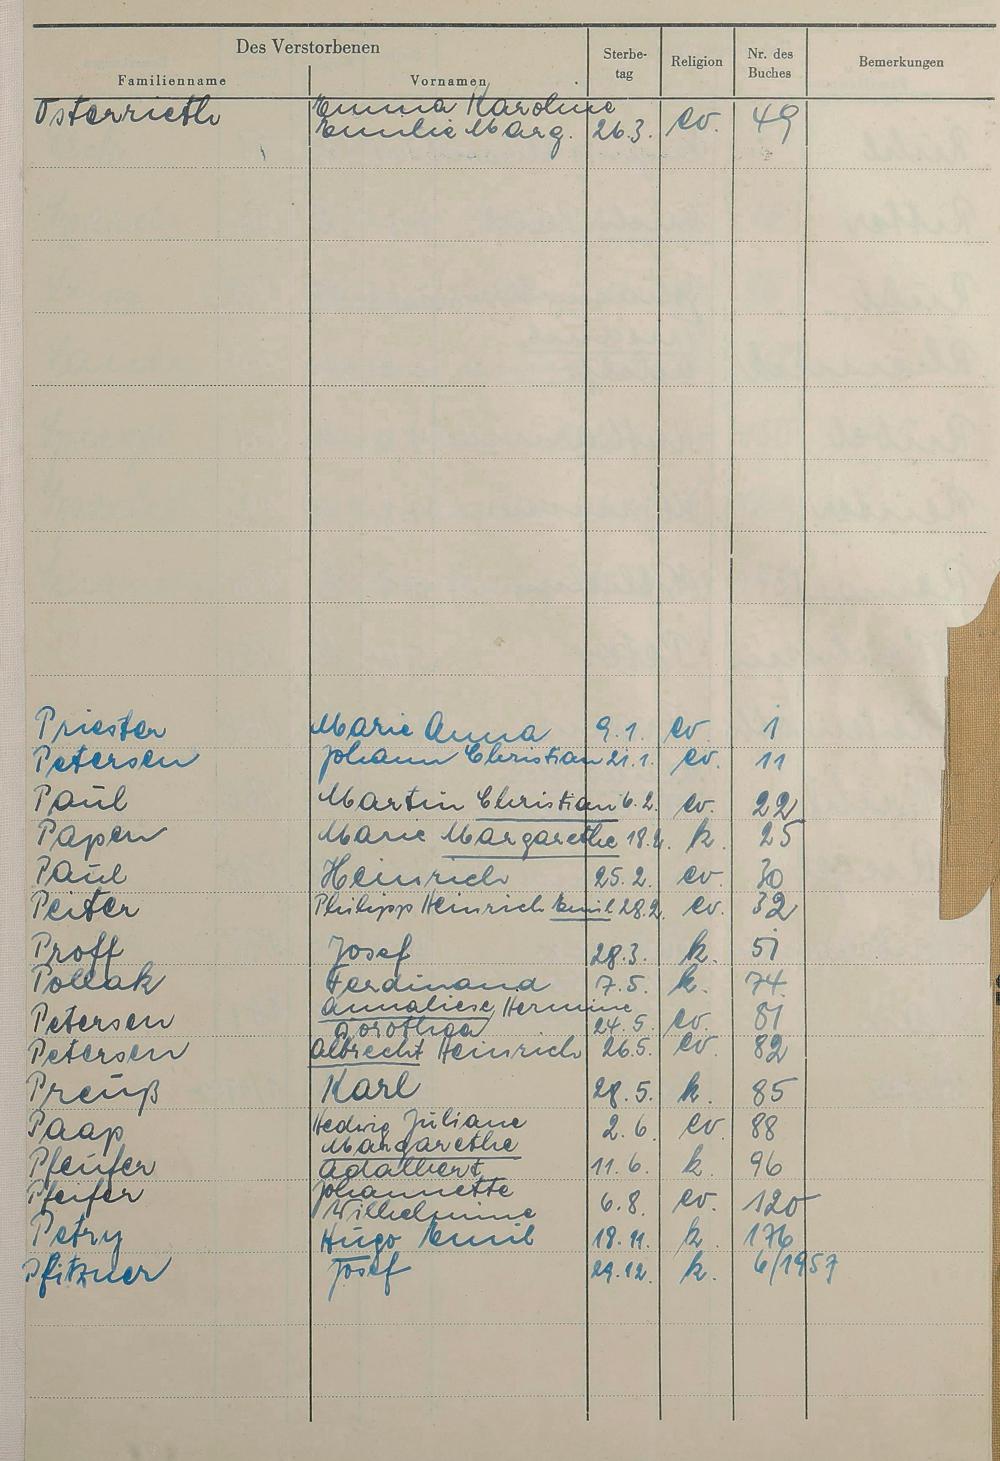 Des Verstorbenen Sterbe-tag Religion Nr. des Buches Bemerkungen
Familienname Vornamen
Österrieth Emma Karoline
Emilie Marg. 26.3. ev. 49
Priester Marie Anna 9.1. ev. 1
Petersen Johann Christian 21.1. ev. 11
Paul Martin Christian 6.2. ev. 22
Papen Marie Margarethe 18.2. k. 25
Paul Heinrich 25.2. ev. 30
Peiter Philipp Heinrich Emil 28.2. ev. 32
Proff Josef 28.3. k. 51
Pollak Ferdinand 7.5. k. 74
Petersen Annaliese Hermine
Dorothea 24.5. ev. 81
Petersen Albrecht Heinrich 26.5. ev. 82
Preuß Karl 28.5. k. 85
Paap Hedwig Juliane
Margarethe 2.6. ev. 88
Pfeufer Adalbert 11.6. k. 96
Pfeifer Johannette
Wilhelmine 6.8. ev. 120
Petry Hugo Emil 18.11. k. 176
Pfitzner Josef 29.12. k. 6/1957